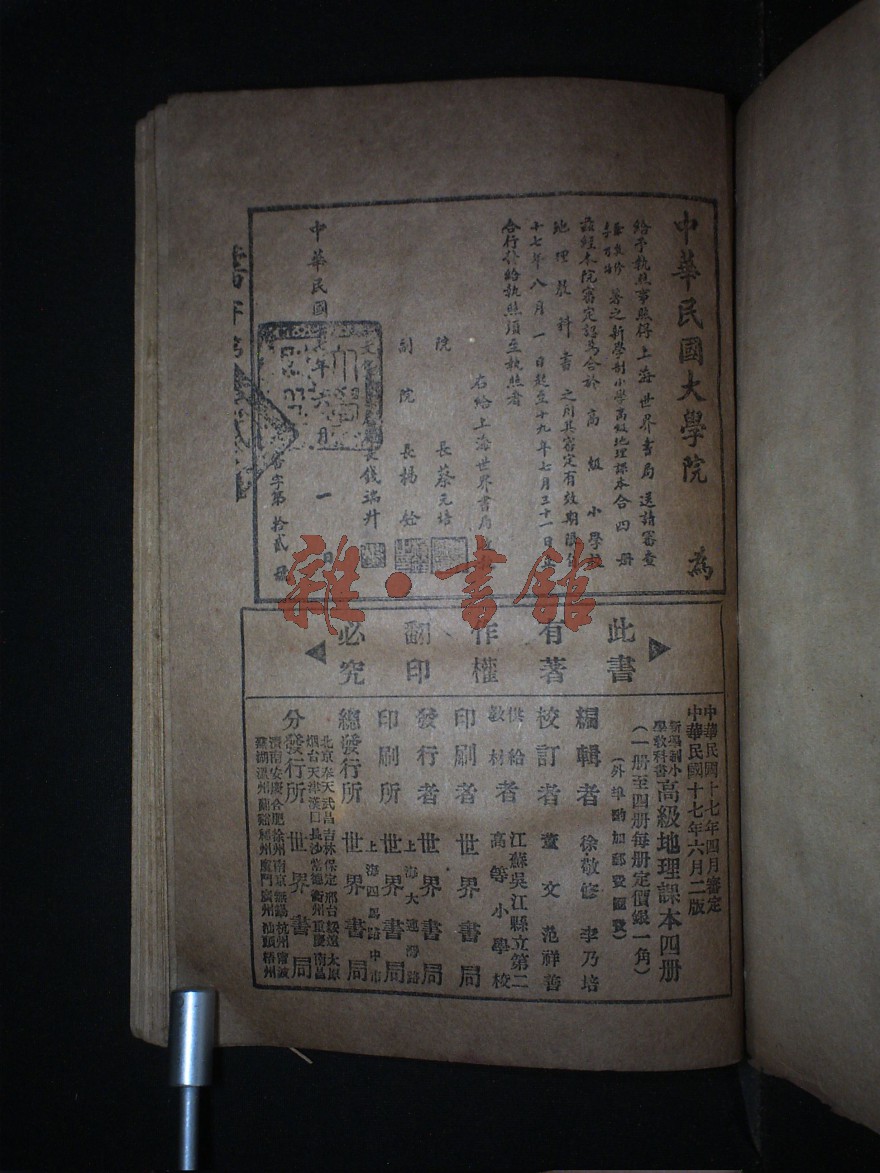 中華民國大學院 為
給予執照事照得上海世界書局送請審查
徐敬修 李乃培 著之新學制小學高級地理課本合四册
茲經本院審定認為合於高級小學校
地理教科書之用其審定有效期限自
十七年八月一日起至十九年七月三十一日止
合行發給執照須至執照者
右給上海世界書局收執
院長蔡元培
副院長楊銓
文化事業處處長錢端升
中華民國十七年六月一日
審字第拾貳號
此書
有著
作權
翻印
必究
中華民國十七年四月審定
中華民國十七年六月二版
新學制小學教科書 高級地理課本四册
(一册至四册每册定價銀一角)
(外埠酌加郵費匯費)
編輯者 徐敬修 李乃培
校訂者 董文 范祥善
供給教材者 江蘇吳江縣立第二高等小學校
印刷者 世界書局
發行者 世界書局
印刷所 上海大連灣路 世界書局
總發行所 上海四馬路中市 世界書局
分發行所 世界書局
北京奉天武昌吉林保定邢台綏遠太原
烟台天津漢口長沙常德衡州重慶南昌
濟南安慶合肥徐州南京無錫杭州甯波
蕪湖溫州蘭谿福州廈門廣州汕頭梧州
雜·書館